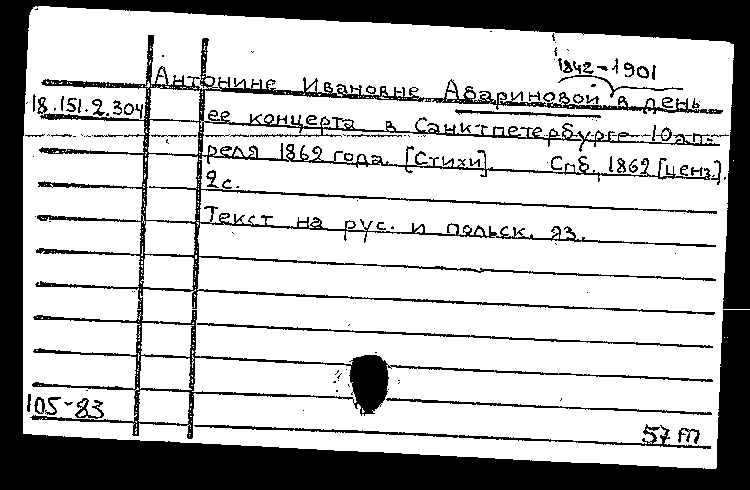 1842-1901
Антонине Ивановне Абариновой в день
18.151.2.304 ее концерта в Санктпетербурге 10 ап-
реля 1862 года. [Стихи]. Спб., 1862 [ценз.].
2с.
Текст на рус. и польск. яз.
105-83
57 т